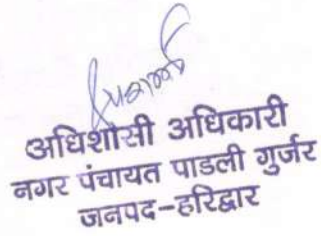 अधिशासी अधिकारी
नगर पंचायत पाडली गुर्जर
जनपद-हरिद्वार